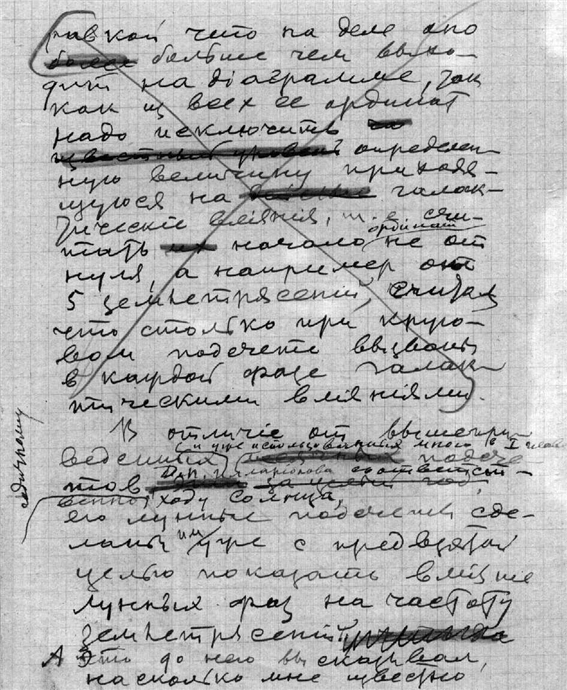 такой что на деле оно
более больше чем выхо-
дит на діаграмме, так
как из всех ее ординат
надо исключить
известный уровень определен-
ную величину приходя-
щуюся на галак-
тическіе вліянія, т. е. счи-
тать начало ординат не от
нуля, а например от
5 землетрясеній, считая
что столько при круго-
вом подсчете вызваны
в каждой фазе галак-
тическими вліяніями.
В отличіе от вышепри-
веденных и уже использованных много в I
подсче-
тов Д. П. соответст-
венно годичному ходу Солнца,
его лунные подсчеты сде-
ланы им уже с предвзятой
целью показать вліяніе
лунных фаз на частоту
землетрясеній
А это до него высказывал,
насколько мне известно